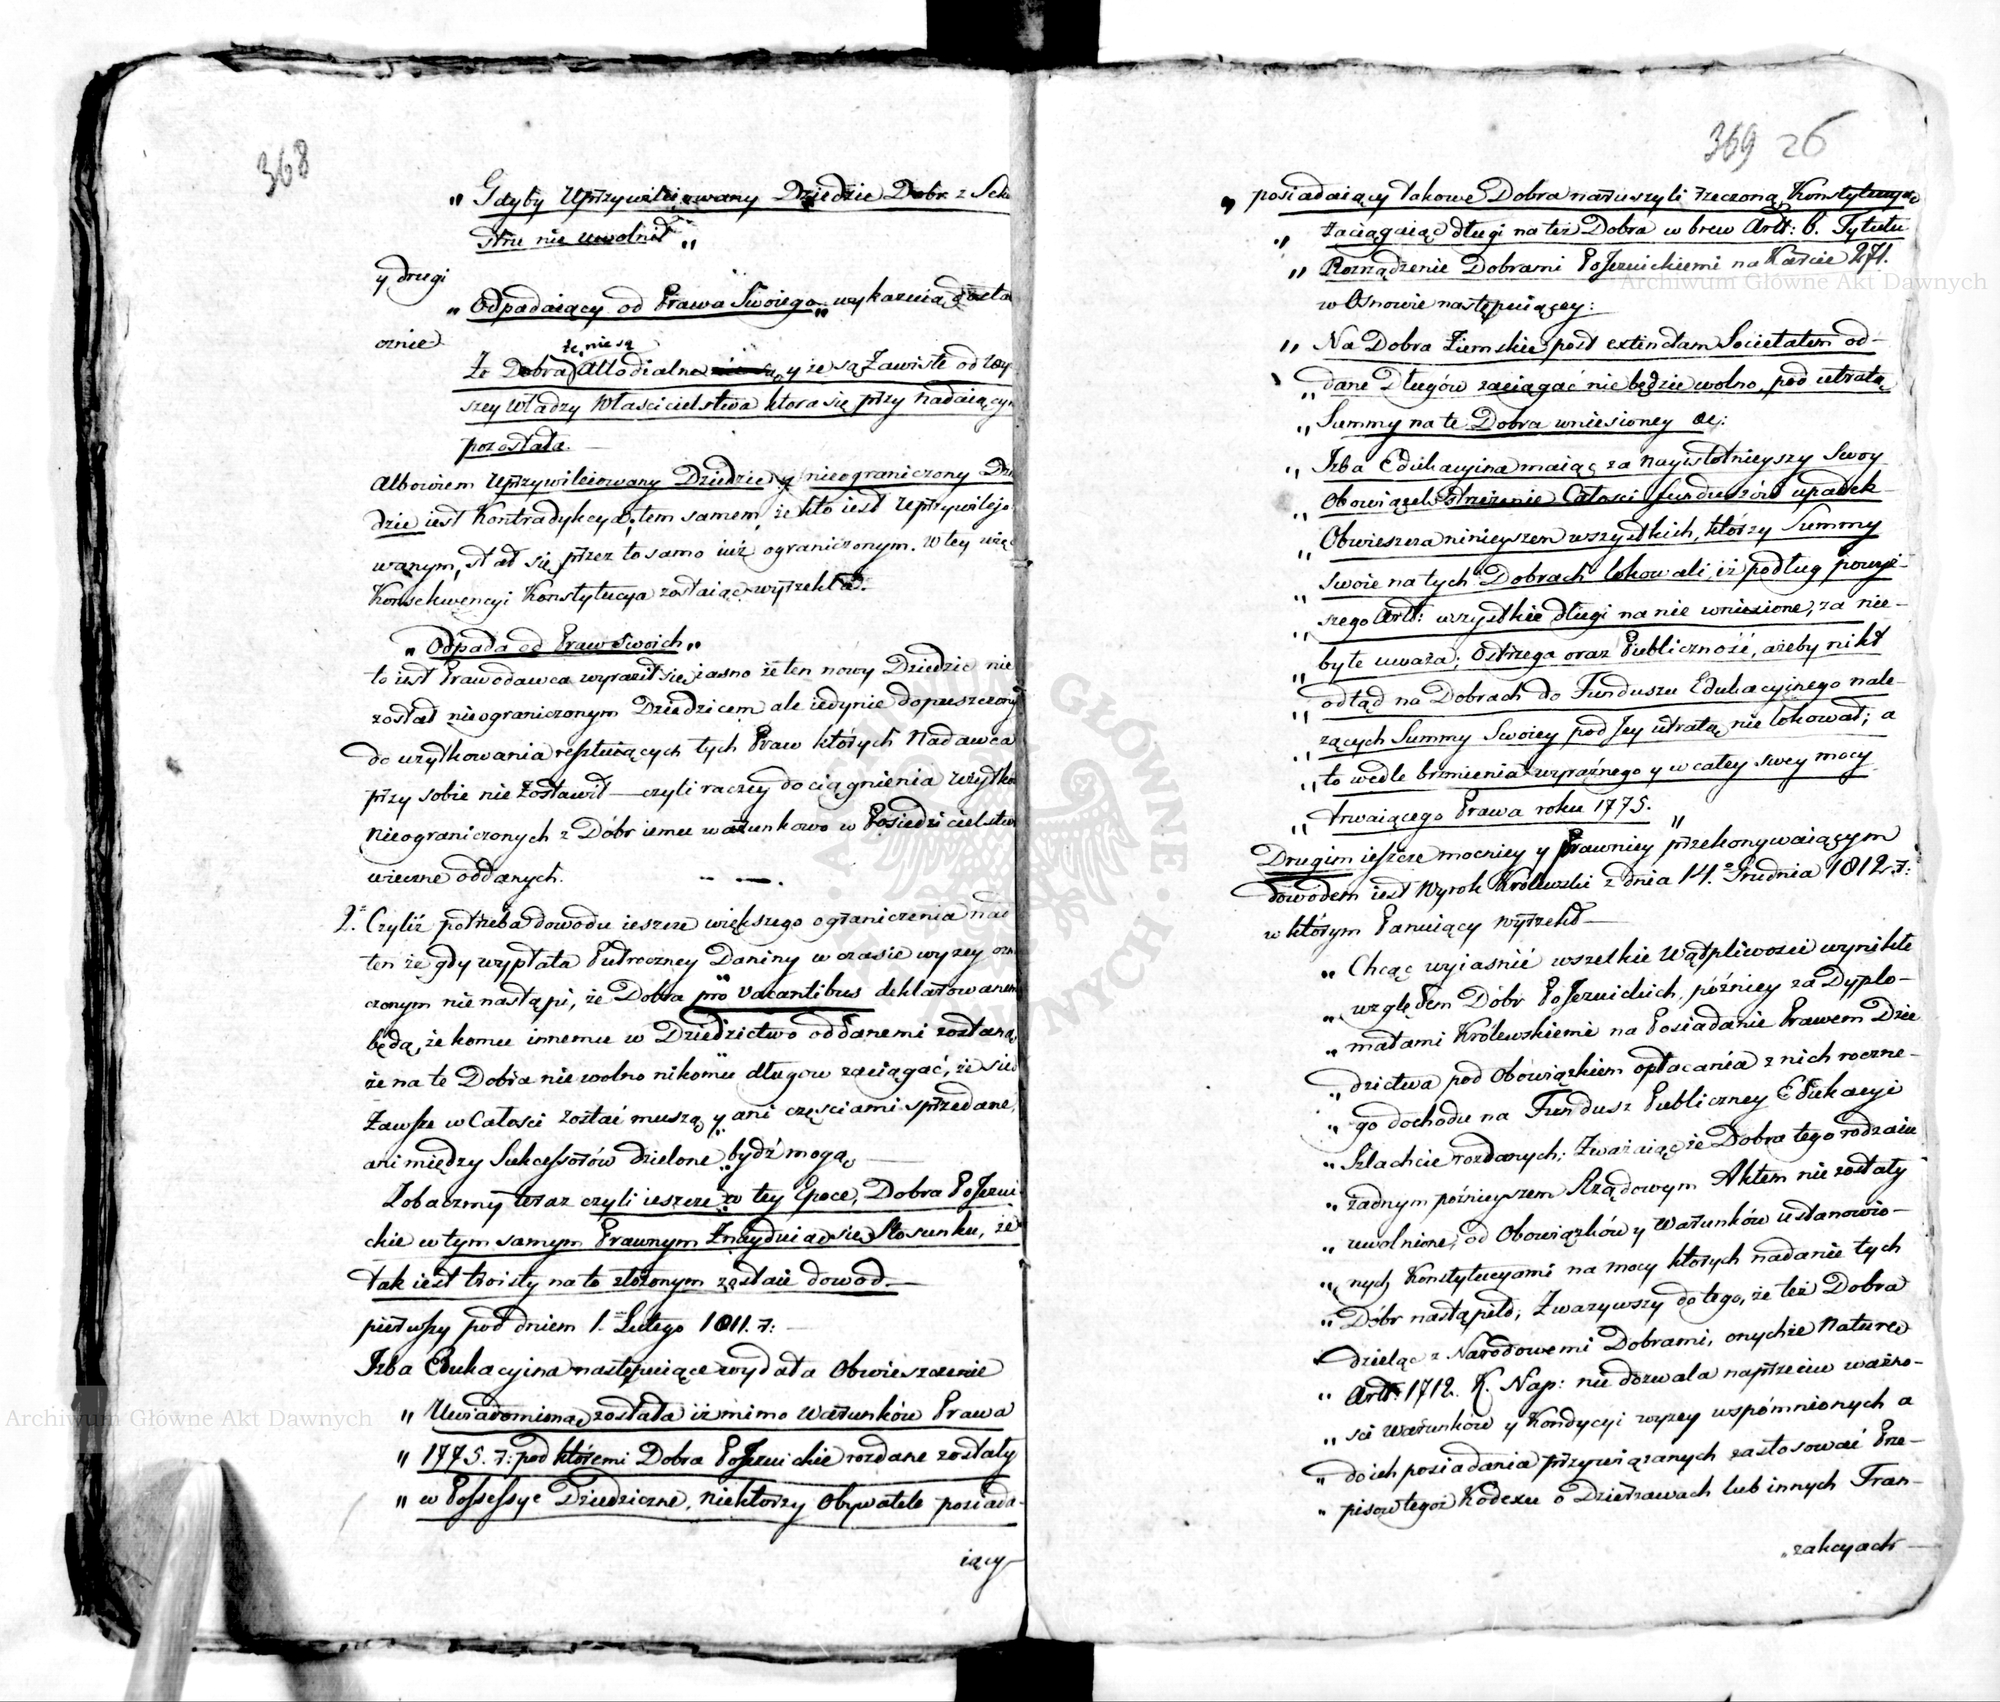 368
„ Gdyby Uprzywileiowany Dziedzic Dobr z Sek
stru nie uwolnił „
y drugi
„ Odpadaiący od Prawa Swoiego „ wykazuią
ocznie
że nie są
Że Dobra Allodialne y że są Zawisłe od wy
szey Władzy Właścicielstwa ktora się przy nadaiącym
pozostała. —
Albowiem Uprzywileiowany Dziedzic y nieograniczony Dzie
dzic iest Kontradykcya, tem samem, że kto iest Uprzywilejo
wanym, stał się przez to samo iuż ograniczonym. W tey więc
Konsekwencyi Konstytucya zostaiąc wyrzekła.
„ Odpada od Praw Swoich „
to iest Prawodawca wyraził się iasno że ten nowy Dziedzic nie
został nieograniczonym Dziedzicem ale iedynie dopuszczony
do użytkowania resztuiących tych Praw których Nadawca
przy sobie nie zostawił — czyli raczey do ciągnienia Użytków
nieograniczonych z Dóbr iemu warunkowo w Posiedzicielstwo
wieczne oddanych.
2. Czyliż potrzeba dowodu ieszcze większego ograniczenia nad
ten że gdy wypłata Półroczney Daniny w czasie wyzey ozna
czonym nie nastąpi, że Dobra pro vacantibus deklarowanemi
będą, że komu innemu w Dziedzictwo oddanemi zostaną
że na te Dobra nie wolno nikomu długow zaciągać, że
Zawsze w Całości zostać muszą y ani częściami sprzedane,
ani między Sukcessorów dzielone bydź mogą —
Zobaczmy teraz czyli ieszcze w tey Epoce, Dobra PoJezui
ckie w tym samym Prawnym Znayduią się Stosunku, że
tak iest troisty na to złożonym zostaie dowod. —
pierwszy pod dniem 1. Lutego 1811. r: —
Izba Edukacyina następuiące wydała Obwieszczenie
„ Uwiadomioną została iż mimo Warunków Prawa
„ 1775. r: pod któremi Dobra PoJezuickie rozdane zostały
„ w Possessyę Dziedziczne, niektorzy Obywatele posiada-
iący
369 26
„ posiadaiący takowe Dobra naruszyli rzeczoną Konstytucyą
„ zaciągaiąc długi na też Dobra w brew Artt: 6. Tytułu
„ Rozrządzenie Dobrami PoJezuickiemi na Karcie 271.
w Osnowie następuiącey:
„ Na Dobra Ziemskie post extinctam Societatem od-
„ dane Długów zaciągać nie będzie wolno, pod utratą
„ Summy na te Dobra wniesioney
„ Izba Edukacyina maiąc za nayistotnieyszy Swoy
„ Obowiązek strzeżenie Całości funduszów upadek
„ Obwieszcza ninieyszem wszystkich, którzy Summy
„ swoie na tych Dobrach lokowali, iż podług powyż-
„ szego Artt: wszystkie długi na nie wniesione, za nie-
„ byłe uważa; Ostrzega oraz Publiczność, ażeby nikt
„ odtąd na Dobrach do Funduszu Edukacyinego nale-
„ zących Summy Swoiey pod Jey utratą nie lokował; a
„ to wedle brzmienia wyraźnego y w całey swey mocy
„ trwaiącego Prawa roku 1775. „
Drugim ieszcze mocniey y Prawniey przekonywaiącym
dowodem iest Wyrok Królewski z dnia 14. Grudnia 1812. r:
w którym Panuiący wyrzekł —
„ Chcąc wyiaśnić wszelkie Wątpliwości wynikłe
„ względem Dóbr PoJezuickich, późniey za Dyplo-
„ matami Królewskiemi na Posiadanie Prawem Dzie
„ dzictwa pod Obowiązkiem opłacania z nich roczne-
„ go dochodu na Fundusz Publiczney Edukacyi
„ Szlachcie rozdanych; Zważaiąc że Dobra tego rodzaiu
„ żadnym poźnieyszem Rządowym Aktem nie zostały
„ uwolnione, od Obowiązków y Warunków ustanowio-
„ nych Konstytucyami na mocy których nadanie tych
„ Dóbr nastąpiło; Zważywszy do tego, że też Dobra
„ dzieląc z Narodowemi Dobrami, onychże Naturę
„ Artt: 1712. K. Nap: nie dozwala naprzeciw ważno-
„ ści Warunków y Kondycyi wyzey wspomnionych a
„ do ich posiadania przywiązanych zastosować Prze-
„ pisow tegoż Kodexu o Dzierżawach lub innych Tran-
„ zakcyach —
Archiwum Główne Akt Dawnych
Archiwum Główne Akt Dawnych